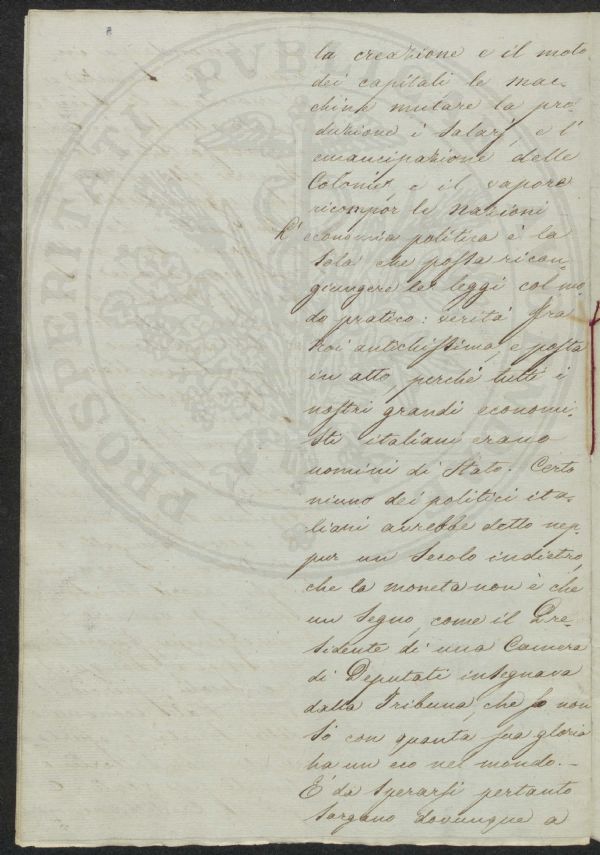 la creazione e il moto
dei capitali le mac-
chine mutare la pro-
duzione i salarj, e l'
emancipazione delle
Colonie, e il vapore
ricompor le Nazioni
L' economia politica è la
sola che possa ricon-
giungere le leggi col mo-
do pratico: verità fra
noi antichissima, e posta
in atto, perchè tutti i
nostri grandi economi-
sti italiani erano
uomini di Stato. Certo
niuno dei politici ita-
liani avrebbe detto nep-
pur un Secolo indietro,
che la moneta non è che
un segno, come il Pre-
sidente di una Camera
di Deputati insegnava
dalla Tribuna, che
so con quanta sua gloria
ha un eco nel mondo. -
È da sperarsi pertanto
sorgano dovunque a
PROSPERITATI PVBL